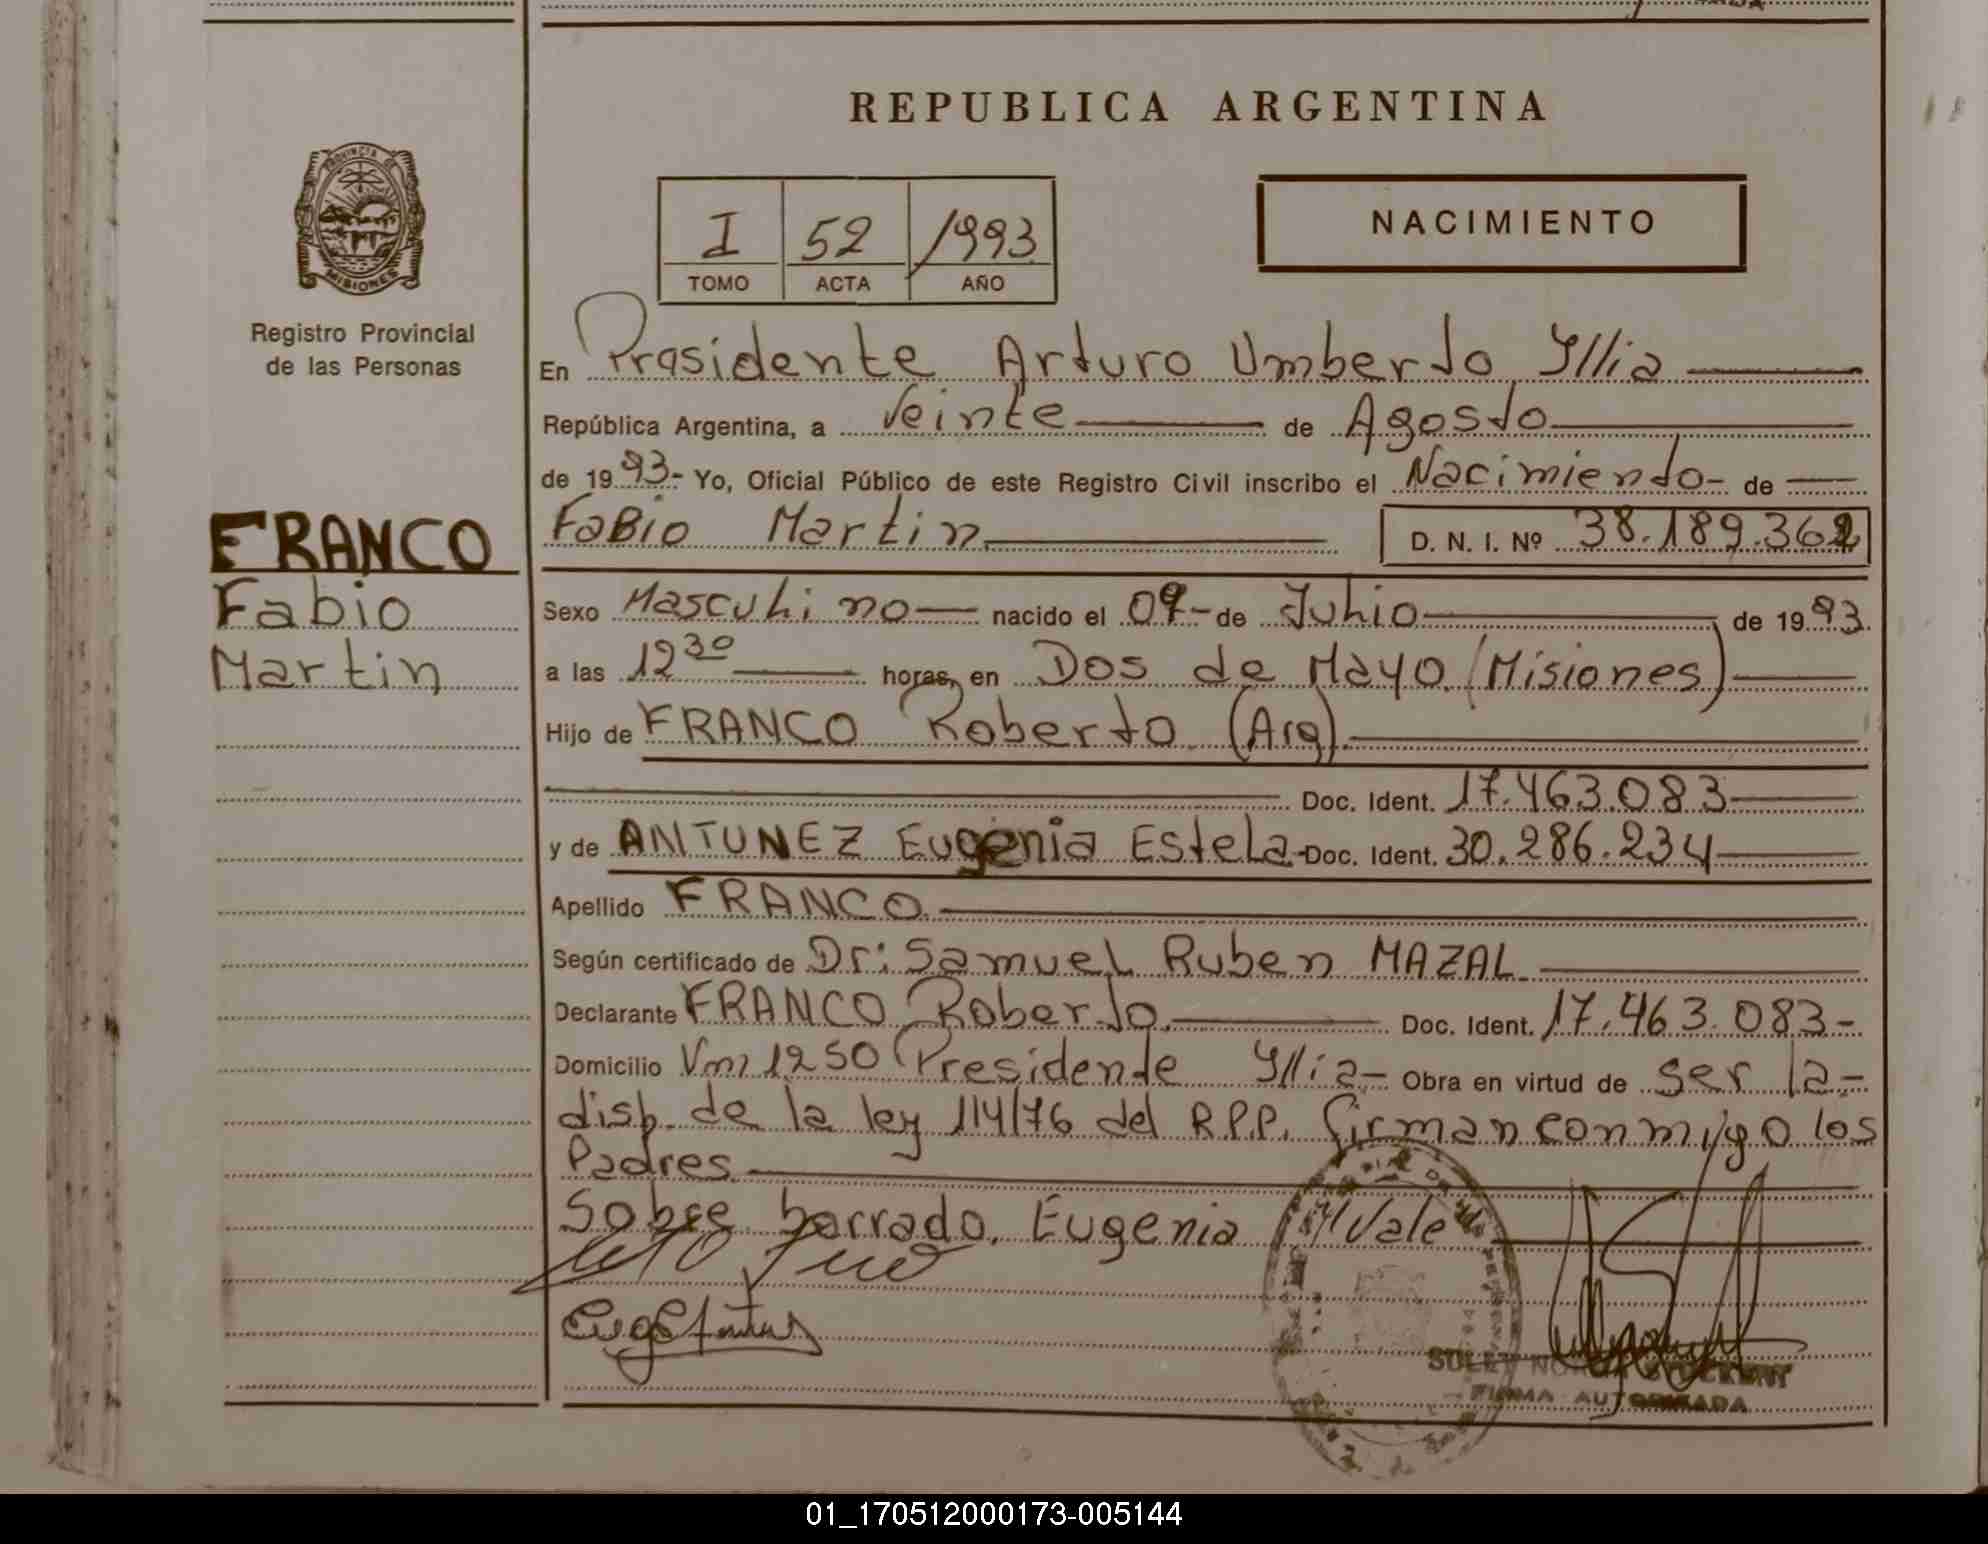 REPUBLICA ARGENTINA
PROVINCIA DE
MISIONES
Registro Provincial
de las Personas
I 52 1993
TOMO ACTA AÑO
NACIMIENTO
En Presidente Arturo Umberto Yllia
República Argentina, a Veinte de Agosto
de 1993- Yo, Oficial Público de este Registro Civil inscribo el Nacimiento- de
Fabio Martin D. N. I. Nº 38.189.362
FRANCO
Fabio
Martin
Sexo Masculino nacido el 09- de Julio de 1993.
a las 12 30 horas, en Dos de Mayo (Misiones)
Hijo de FRANCO Roberto (Arg).
Doc. Ident. 17.463.083
y de ANTUNEZ Eugenia Estela- Doc. Ident. 30.286.234
Apellido FRANCO
Según certificado de Dr: Samuel Ruben MAZAL
Declarante FRANCO Roberto. Doc. Ident. 17.463.083-
Domicilio Vm 1250 Presidente Yllia- Obra en virtud de ser la-
disp. de la ley 114/76 del R.P.P. firman conmigo los
Padres.
Sobre borrado, Eugenia // Vale
FIRMA AUTORIZADA
01_170512000173-005144